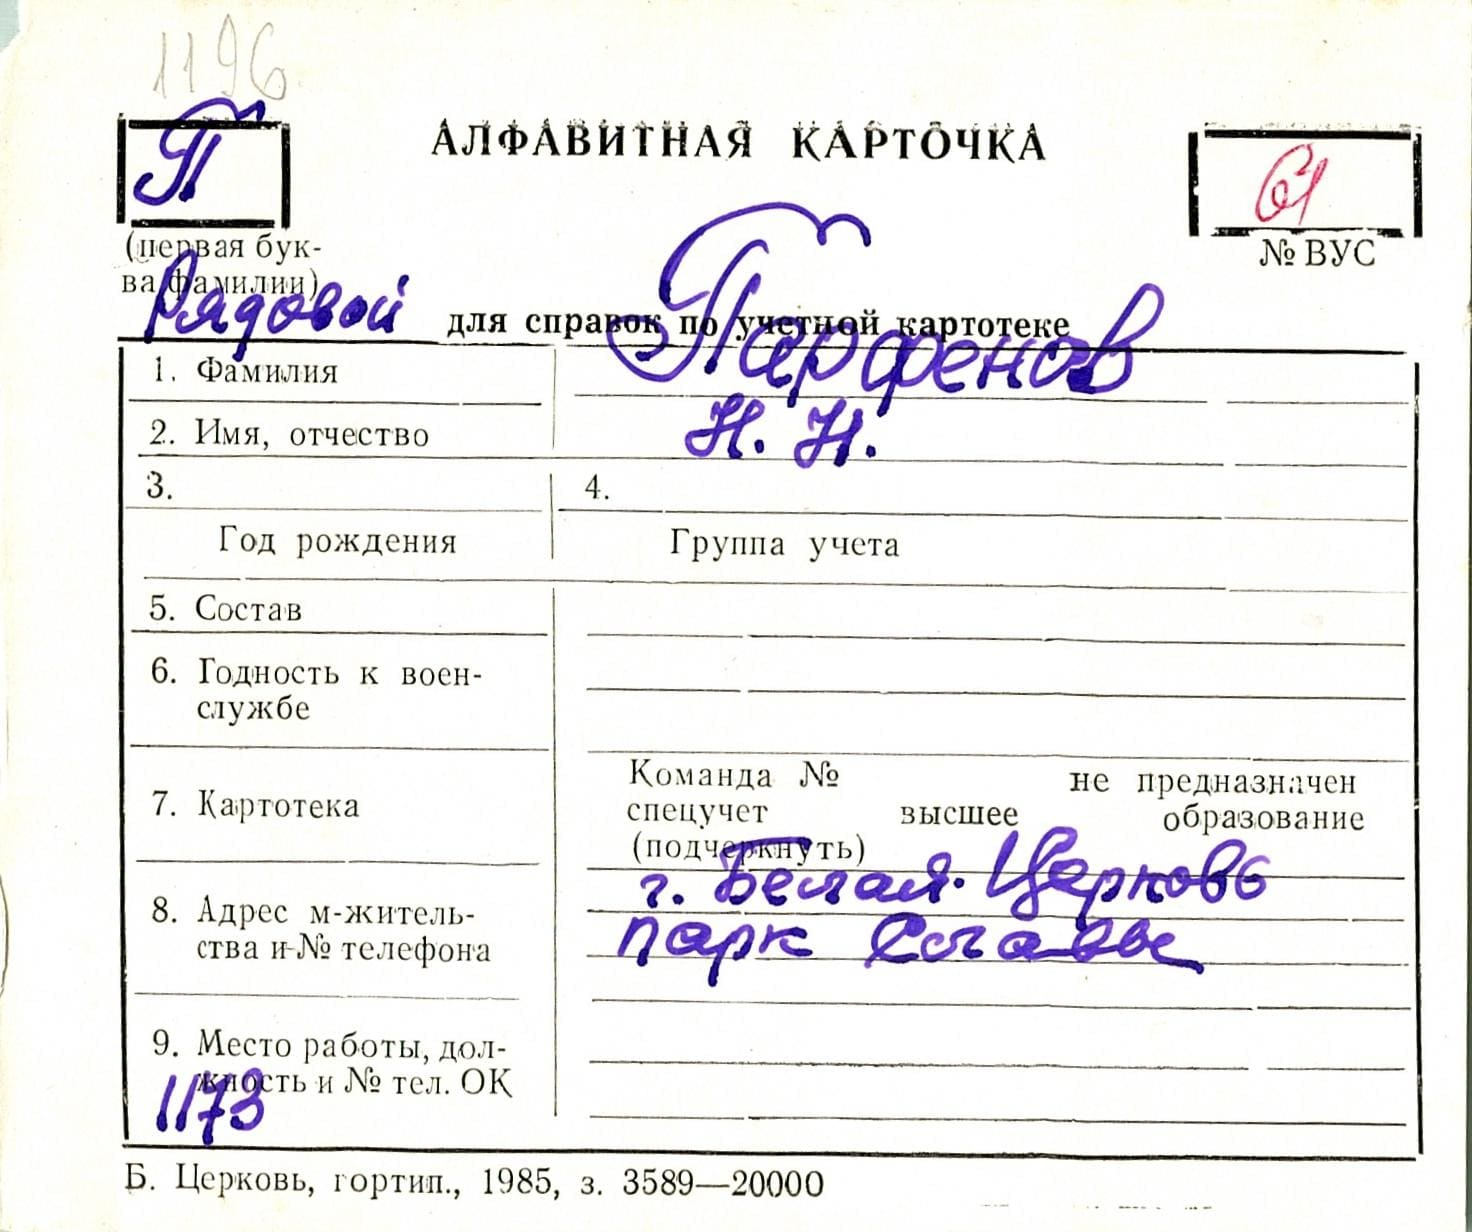 1196
П
АЛФАВИТНАЯ КАРТОЧКА
61
(первая бук-
ва фамилии)
№ ВУС
Рядовой
для справок по учетной картотеке
1. Фамилия
Парфенов
2. Имя, отчество
Н. Н.
3.
4.
Год рождения
Группа учета
5. Состав
6. Годность к воен-
службе
7. Картотека
Команда № не предназначен
спецучет высшее образование
(подчеркнуть)
8. Адрес м-житель-
ства и № телефона
г. Белая Церковь
парк Славы
9. Место работы, дол-
жность и № тел. ОК
1173
Б. Церковь, гортип., 1985, з. 3589—20000